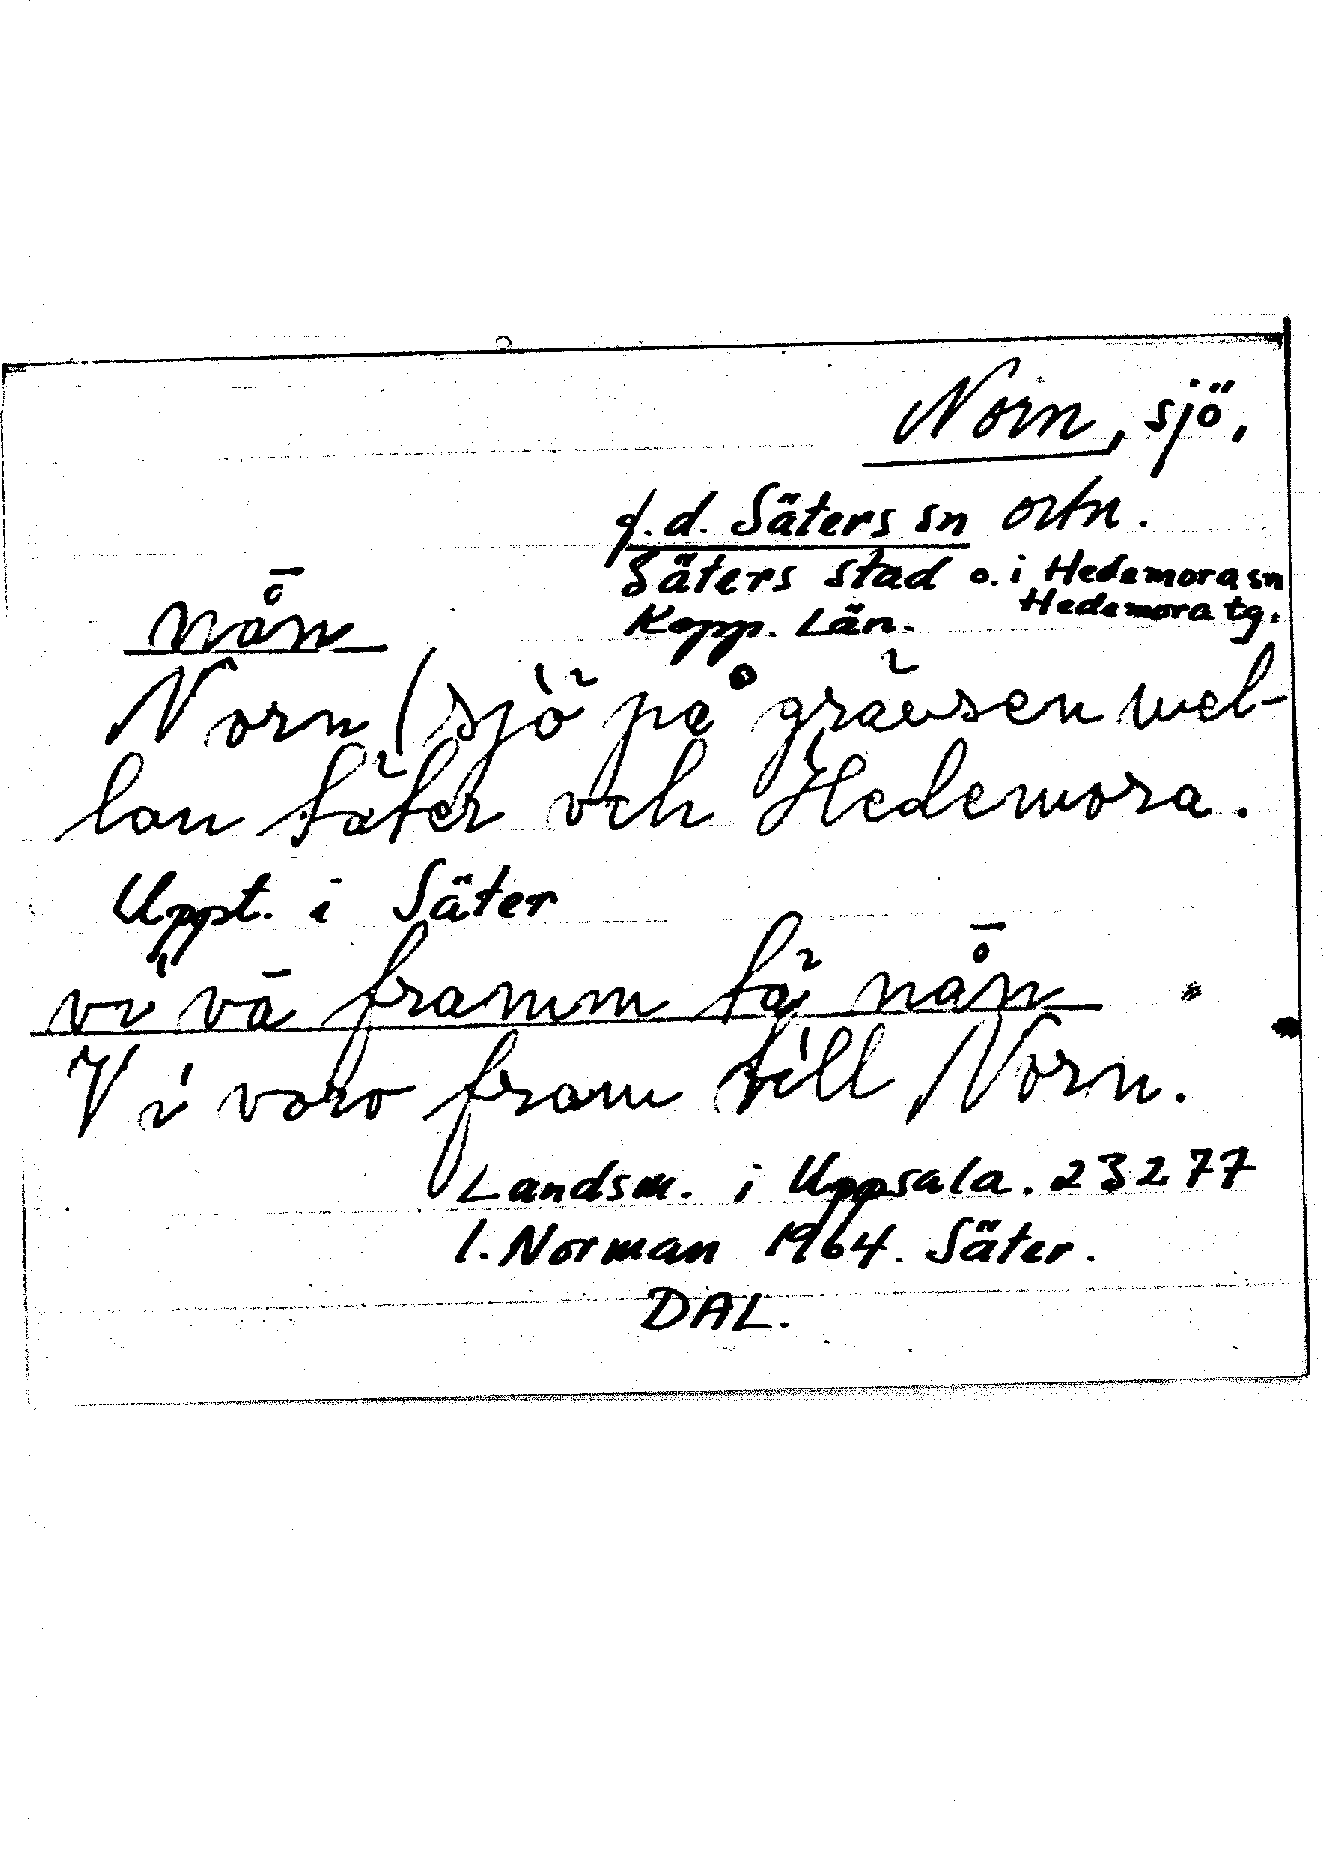 Norn, sjö,
f.d. Säters sn ortn.
Säters stad o. i Hedemora sn
Hedemora tg.
Kopp. Län.
nå̄n
Norn (sjö på gränsen mel-
lan Säter och Hedemora.
Uppt. i Säter
vi vā framm tä nå̄n
Vi voro fram till Norn.
Landsm. i Uppsala. 23277
l. Norman 1964. Säter.
DAL.